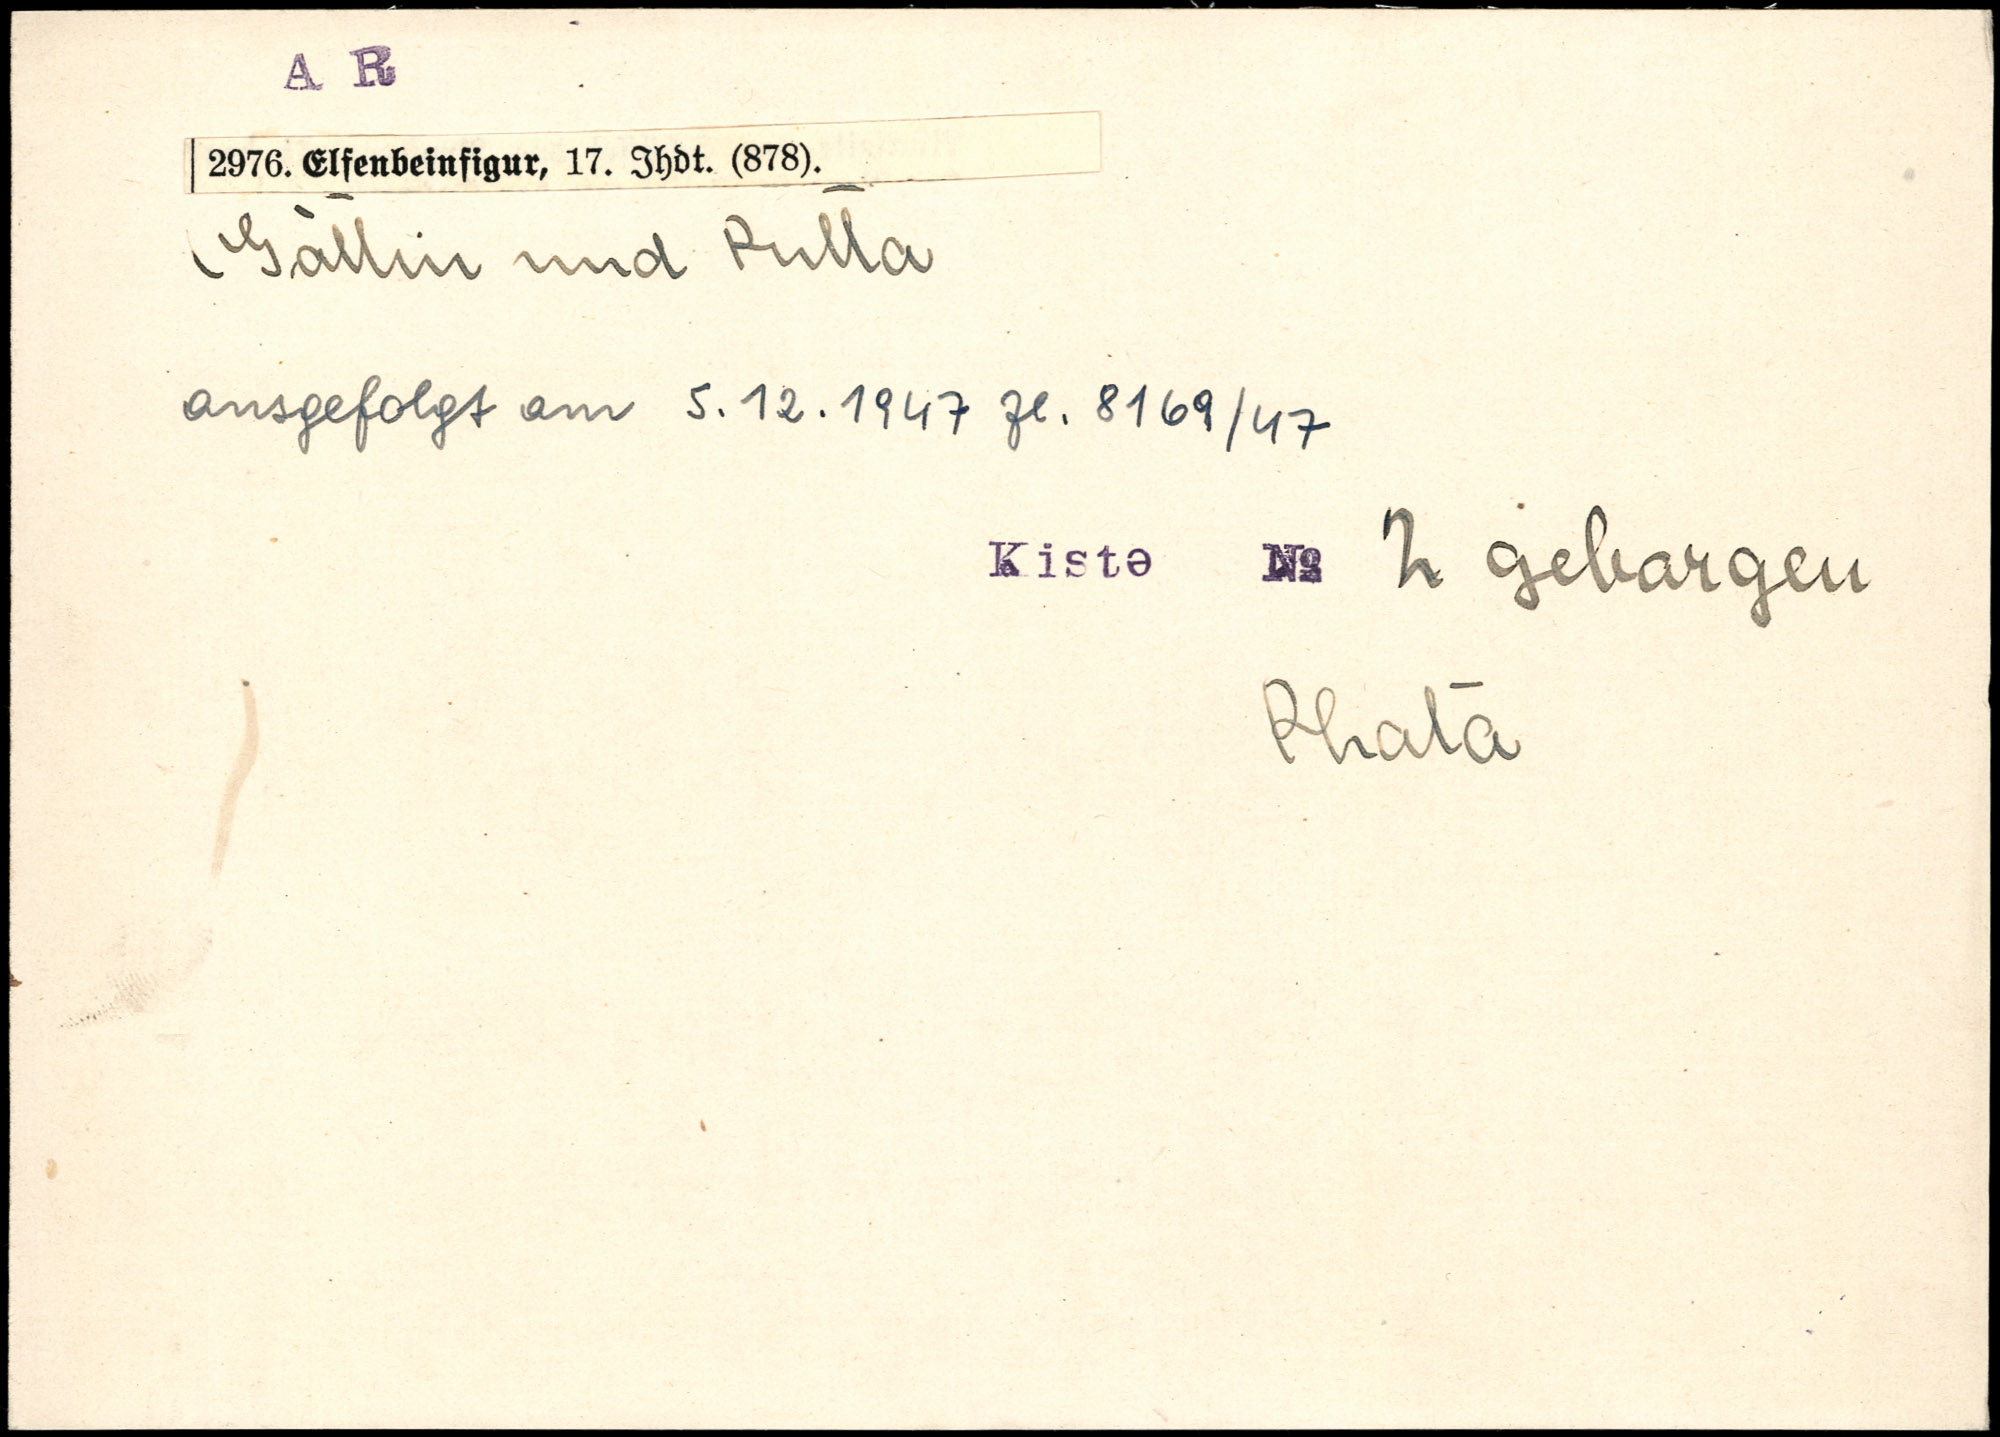 A R
2976. Elfenbeinfigur, 17. Jhdt. (878).
Göttin und Putto
ausgefolgt am 5.12.1947 Zl. 8169/47
Kiste № 2 geborgen
Photo